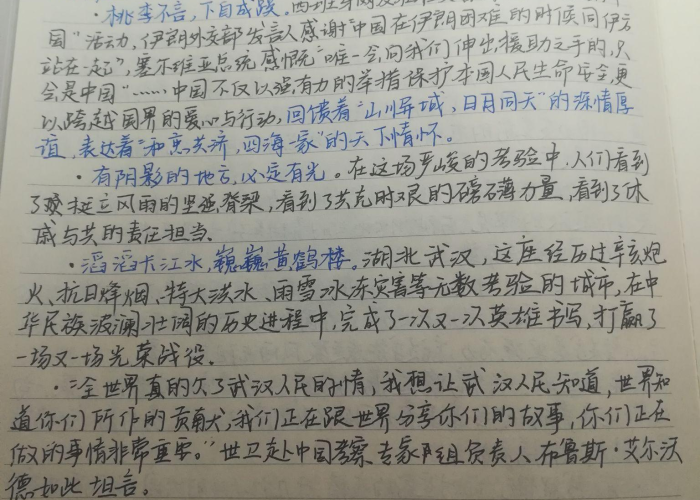 ·桃李不言，下自成蹊。
国”活动，伊朗外交部发言人感谢“中国在伊朗困难的时候同伊方
站在一起”，塞尔维亚总统感慨“唯一会向我们伸出援助之手的，只
会是中国”……中国不仅以强有力的举措保护本国人民生命安全，更
以跨越国界的爱心与行动，回馈着“山川异域，日月同天”的深情厚
谊，表达着“和衷共济，四海一家”的天下情怀。
·有阴影的地方，必定有光。在这场严峻的考验中，人们看到
了挺立风雨的坚强脊梁，看到了共克时艰的磅礴力量，看到了休
戚与共的责任担当。
·滔滔长江水，巍巍黄鹤楼。湖北武汉，这座经历过辛亥炮
火、抗日烽烟、特大洪水、雨雪冰冻灾害等无数考验的城市，在中
华民族波澜壮阔的历史进程中，完成了一次又一次英雄书写，打赢了
一场又一场光荣战役。
·“全世界真的欠了武汉人民的情，我想让武汉人民知道，世界知
道你们所作的贡献，我们正在跟世界分享你们的故事，你们正在
做的事情非常重要。”世卫赴中国考察专家组负责人布鲁斯·艾尔沃
德如此坦言。